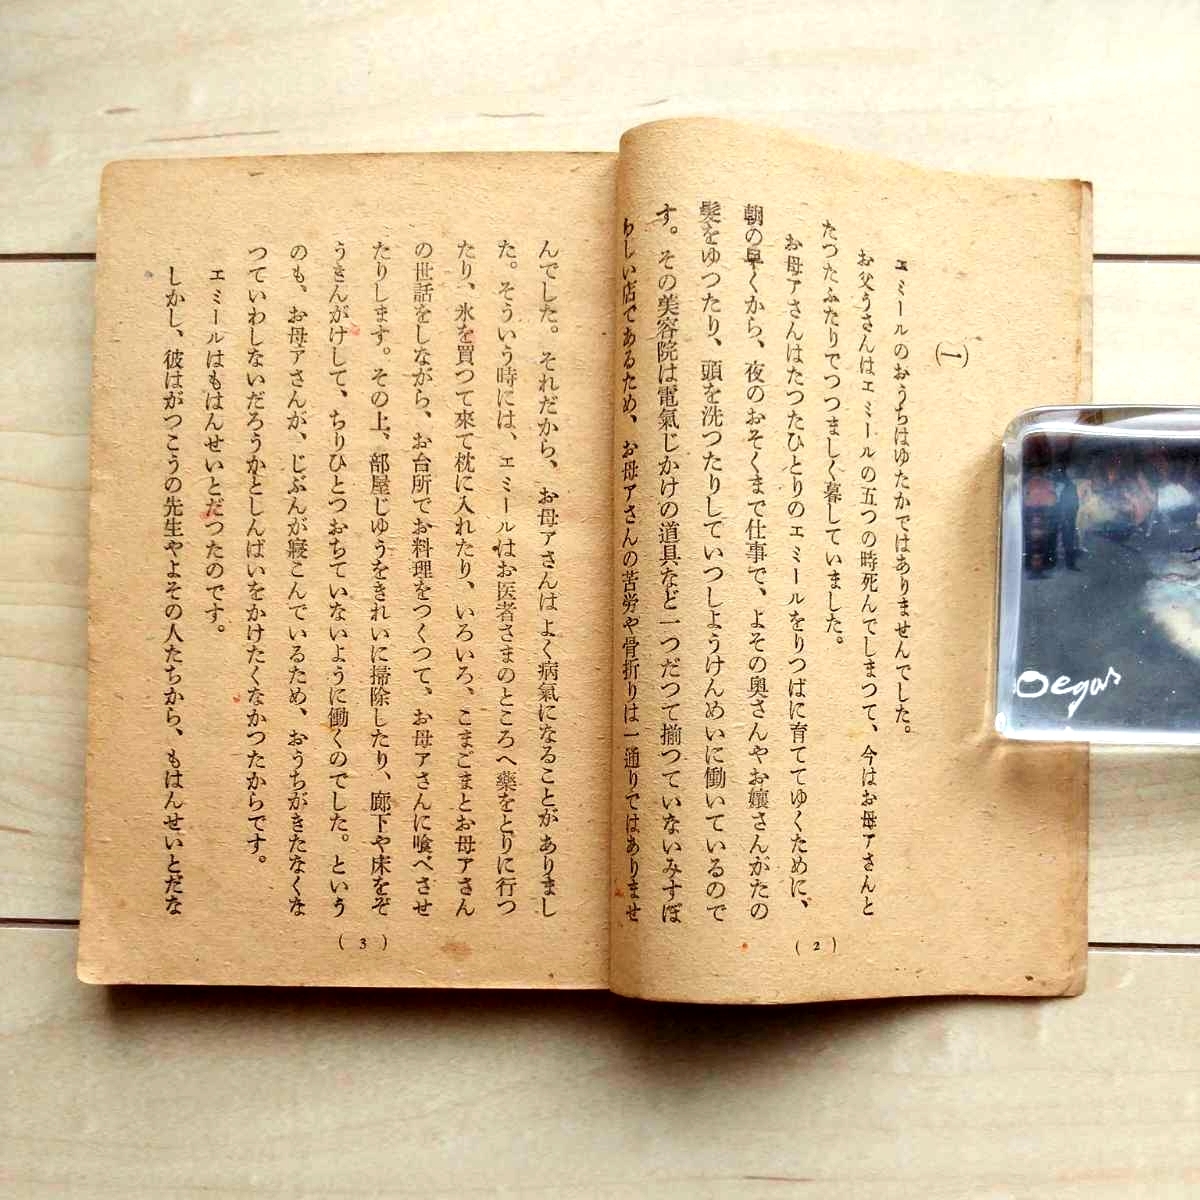 (一)
エミールのおうちはゆたかではありませんでした。
お父うさんはエミールの五つの時死んでしまつて、今はお母アさんと
たつたふたりでつつましく暮していました。
お母アさんはたつたひとりのエミールをりつぱに育ててゆくために、
朝の早くから、夜のおそくまで仕事で、よその奥さんやお孃さんがたの
髪をゆつたり、頭を洗つたりしていつしようけんめいに働いているので
す。その美容院は電氣じかけの道具など一つだつて揃つていないみすぼ
らしい店であるため、お母アさんの苦労や骨折りは一通りではありませ
(2)
んでした。それだから、お母アさんはよく病氣になることがありまし
た。そういう時には、エミールはお医者さまのところへ藥をとりに行つ
たり、氷を買つて來て枕に入れたり、いろいろ、こまごまとお母アさん
の世話をしながら、お台所でお料理をつくつて、お母アさんに喰べさせ
たりします。その上、部屋じゆうをきれいに掃除したり、廊下や床をぞ
うきんがけして、ちりひとつおちていないように働くのでした。という
のも、お母アさんが、じぶんが寝こんでいるため、おうちがきたなくな
つていわしないだろうかとしんぱいをかけたくなかつたからです。
エミールはもはんせいとだつたのです。
しかし、彼はがつこうの先生やよその人たちから、もはんせいとだな
(3)
Degas